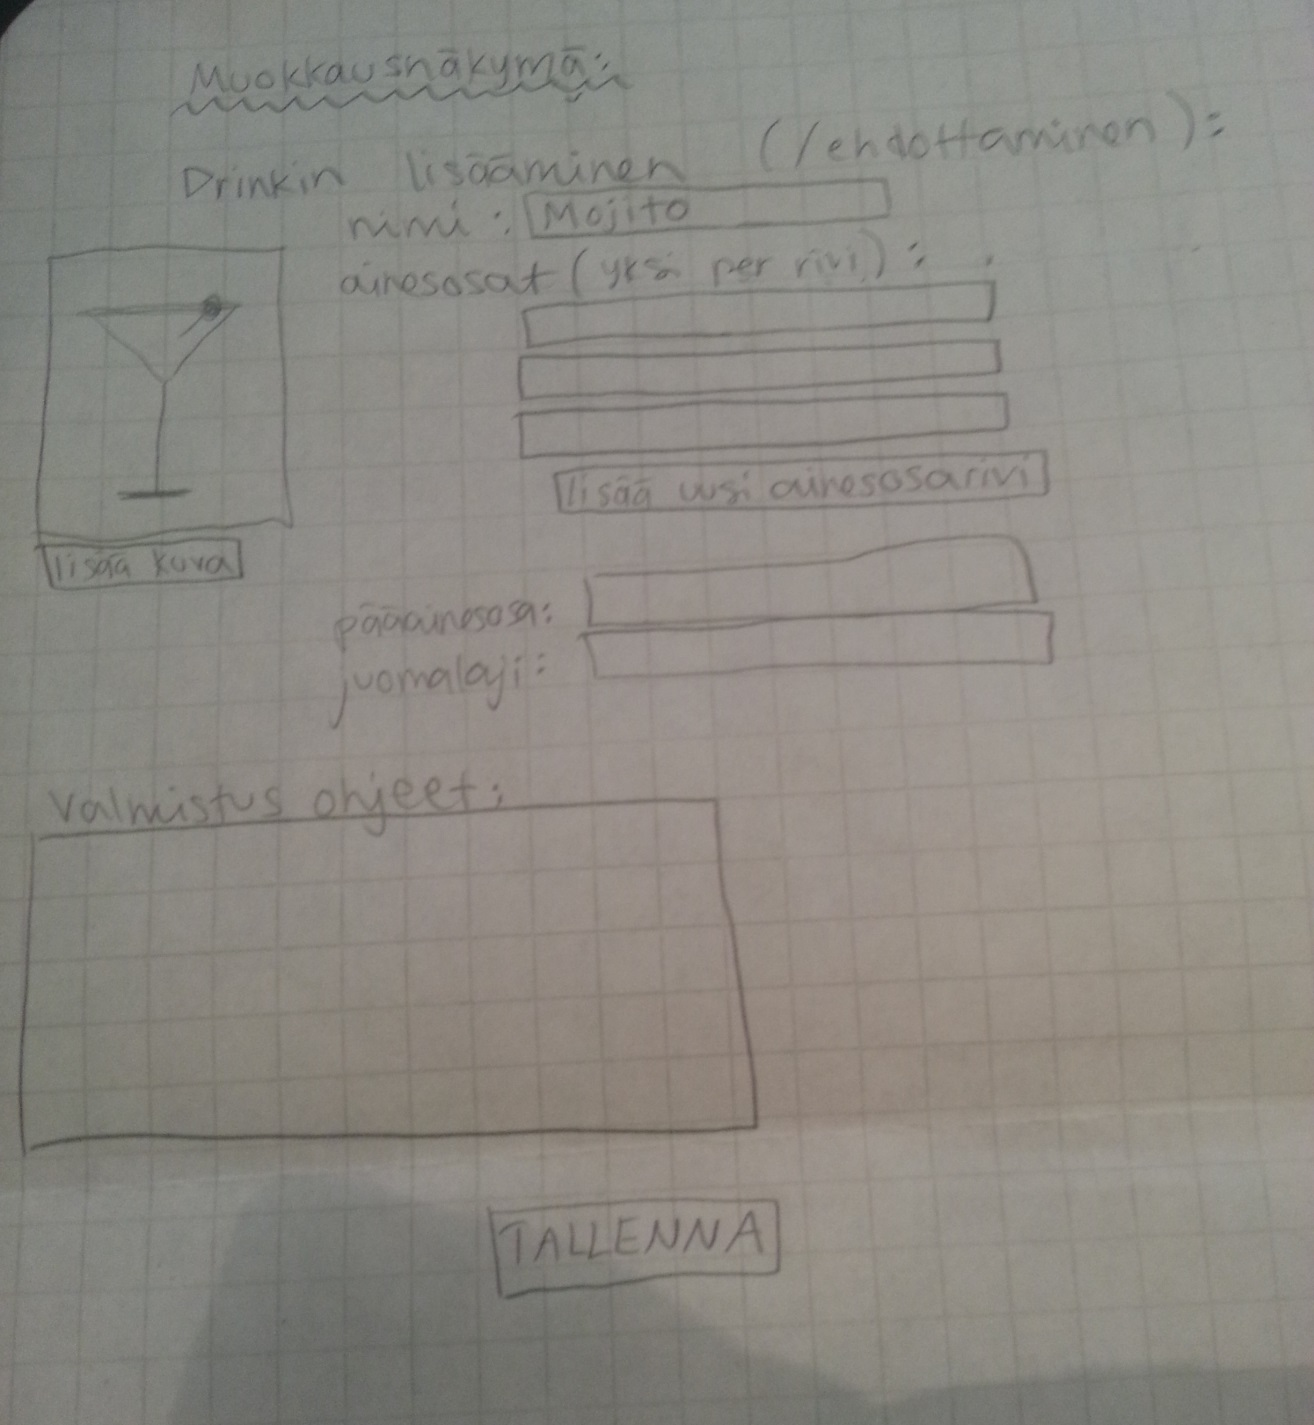 Muokkausnäkymä:
Drinkin lisääminen (/ehdottaminen):
nimi: Mojito
ainesosat (yksi per rivi):
lisää uusi ainesosarivi
lisää kuva
pääainesosa:
juomalaji:
Valmistus ohjeet:
TALLENNA